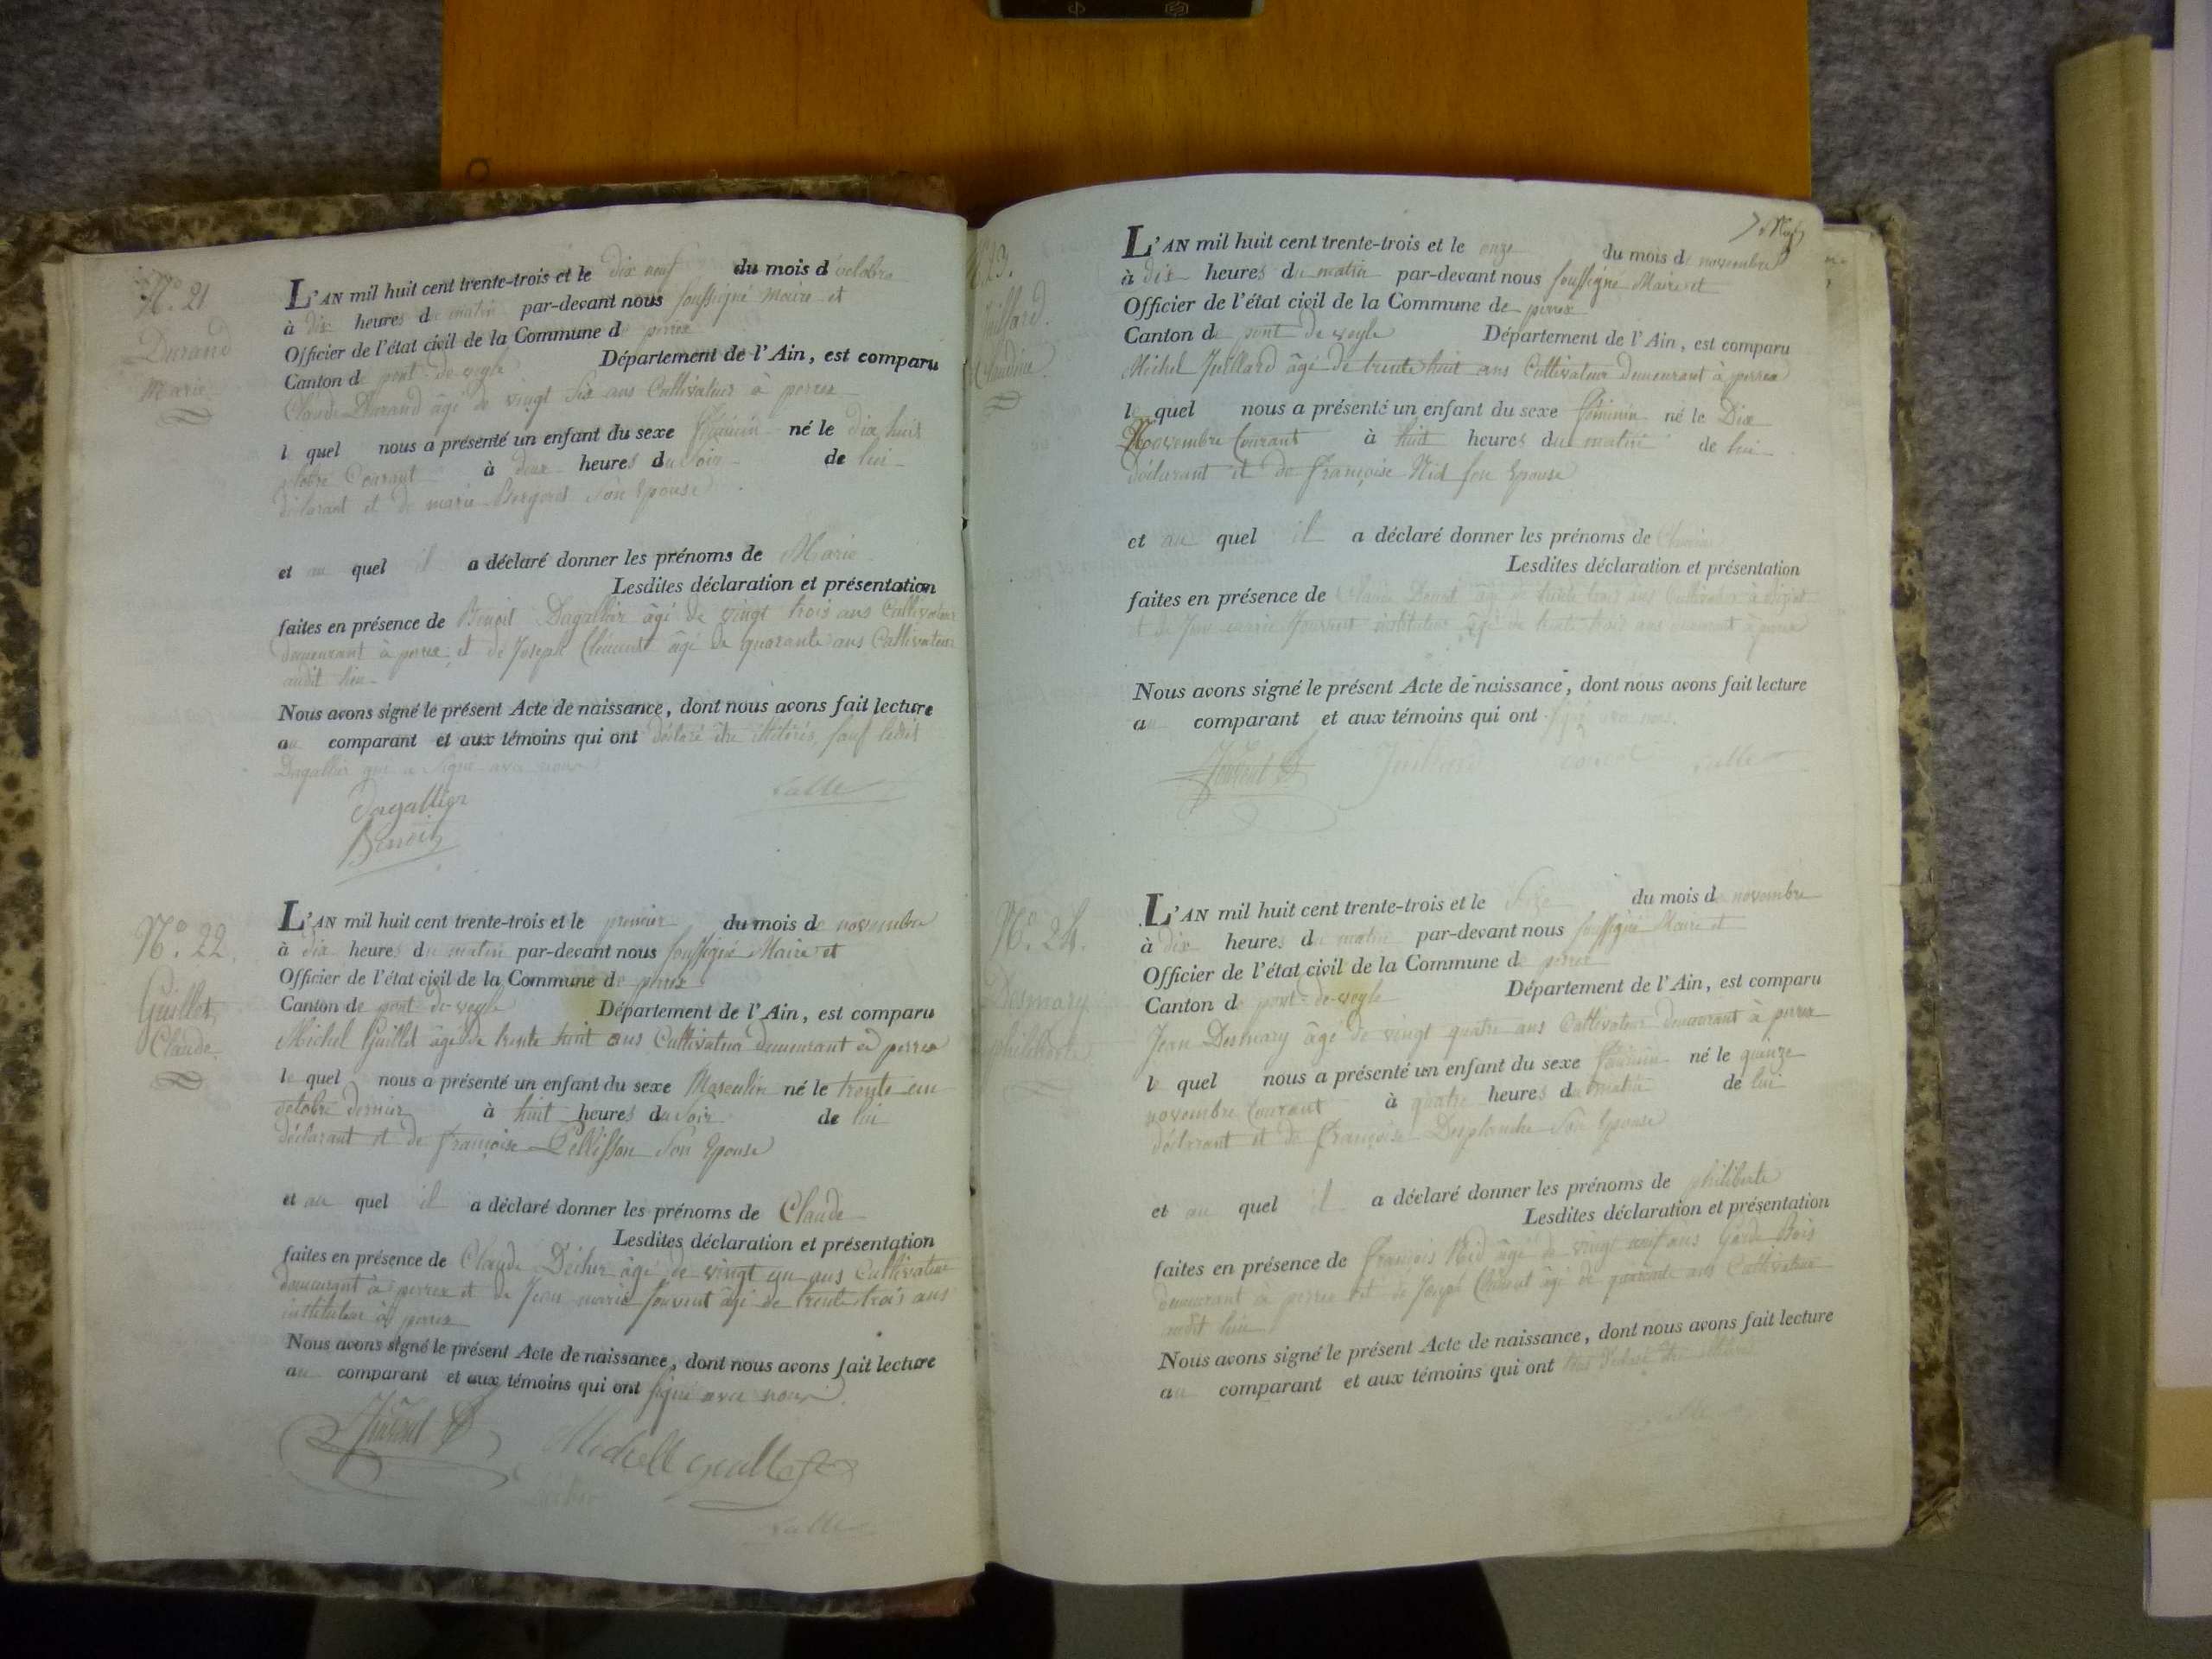 N.° 21
Durand
Marie
L'AN mil huit cent trente-trois et le dix neuf du mois d'octobre
à dix heures du matin par-devant nous soussigné Maire et
Officier de l'état civil de la Commune de perrex
Canton de pont-de-veyle Département de l'Ain, est comparu
Claude Durand âgé de vingt six ans Cultivateur à perrex
lequel nous a présenté un enfant du sexe féminin né le dix huit
octobre Courant à deux heures du soir de lui
déclarant et de marie son Epouse
et au quel il a déclaré donner les prénoms de Marie
Lesdites déclaration et présentation
faites en présence de Benoit Dagallier âgé de vingt trois ans Cultivateur
demeurant à perrex et de Joseph Clément âgé de quarante ans Cultivateur
audit lieu
Nous avons signé le présent Acte de naissance, dont nous avons fait lecture
au comparant et aux témoins qui ont déclaré être illitérés, sauf ledit
Dagallier qui a signé avec nous
Dagallier
Benoit
Lalle
N.° 22.
Guillet
Claude.
L'AN mil huit cent trente-trois et le premier du mois de novembre
à dix heures du matin par-devant nous soussigné Maire et
Officier de l'état civil de la Commune de perrex
Canton de pont-de-veyle Département de l'Ain, est comparu
Michel Guillet âgé de trente huit ans Cultivateur demeurant à perrex
lequel nous a présenté un enfant du sexe Masculin né le trente un
octobre dernier à huit heures du soir de lui
déclarant et de françoise Pellisson son Epouse
et au quel il a déclaré donner les prénoms de Claude
Lesdites déclaration et présentation
faites en présence de Claude Décher âgé de vingt un ans Cultivateur
demeurant à perrex et de Jean marie Jouvent âgé de trente trois ans
instituteur à perrex
Nous avons signé le présent Acte de naissance, dont nous avons fait lecture
au comparant et aux témoins qui ont signé avec nous.
Jouvent
Lalle
L'AN mil huit cent trente-trois et le onze du mois de novembre
à dix heures du matin par-devant nous soussigné Maire et
Officier de l'état civil de la Commune de perrex
Canton de pont de veyle Département de l'Ain, est comparu
Michel Juillard âgé de trente huit ans Cultivateur demeurant à perrex
lequel nous a présenté un enfant du sexe féminin né le Dix
Novembre Courant à huit heures du matin de lui
déclarant et de françoise Nid son Epouse
et au quel il a déclaré donner les prénoms de
Lesdites déclaration et présentation
faites en présence de Claude âgé de trente trois ans Cultivateur à
et de Jean marie Jouvent instituteur âgé de trente trois ans demeurant à perrex
Nous avons signé le présent Acte de naissance, dont nous avons fait lecture
au comparant et aux témoins qui ont signé avec nous.
Jouvent Juillard Lalle
N.° 24.
Desmary
philiberte
L'AN mil huit cent trente-trois et le seize du mois de novembre
à dix heures du matin par-devant nous soussigné Maire et
Officier de l'état civil de la Commune de perrex
Canton de pont-de-veyle Département de l'Ain, est comparu
Jean Desmary âgé de vingt quatre ans Cultivateur demeurant à perrex
lequel nous a présenté un enfant du sexe féminin né le quinze
novembre Courant à quatre heures du matin de lui
déclarant et de françoise Desplanche son Epouse
et au quel il a déclaré donner les prénoms de philiberte
Lesdites déclaration et présentation
faites en présence de françois Nid âgé de vingt neuf ans Garde Bois
demeurant à perrex et de Joseph Clément âgé de quarante ans Cultivateur
audit lieu
Nous avons signé le présent Acte de naissance, dont nous avons fait lecture
au comparant et aux témoins qui ont tous déclaré être